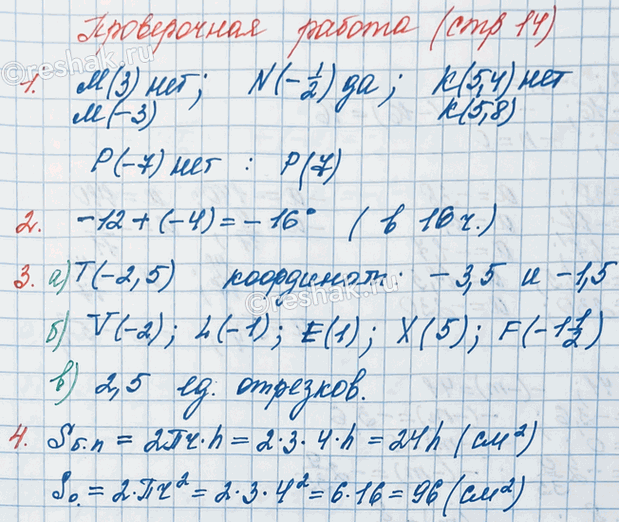 Проверочная работа (стр 14)
1. М(3) нет; N(-1/2) да; К(5,4) нет
М(-3) К(5,8)
Р(-7) нет : Р(7)
2. -12+(-4)=-16° (в 16ч.)
3. а) Т(-2,5) координат. -3,5 и -1,5
б) V(-2); L(-1); E(1); X(5); F(-1 1/2)
в) 2,5 ед. отрезков.
4. Sб.п = 2πч·h = 2·3·4·h = 24h (см²)
So. = 2·πч² = 2·3·4² = 6·16 = 96 (см²)
©reshak.ru
©reshak.ru
©reshak.ru